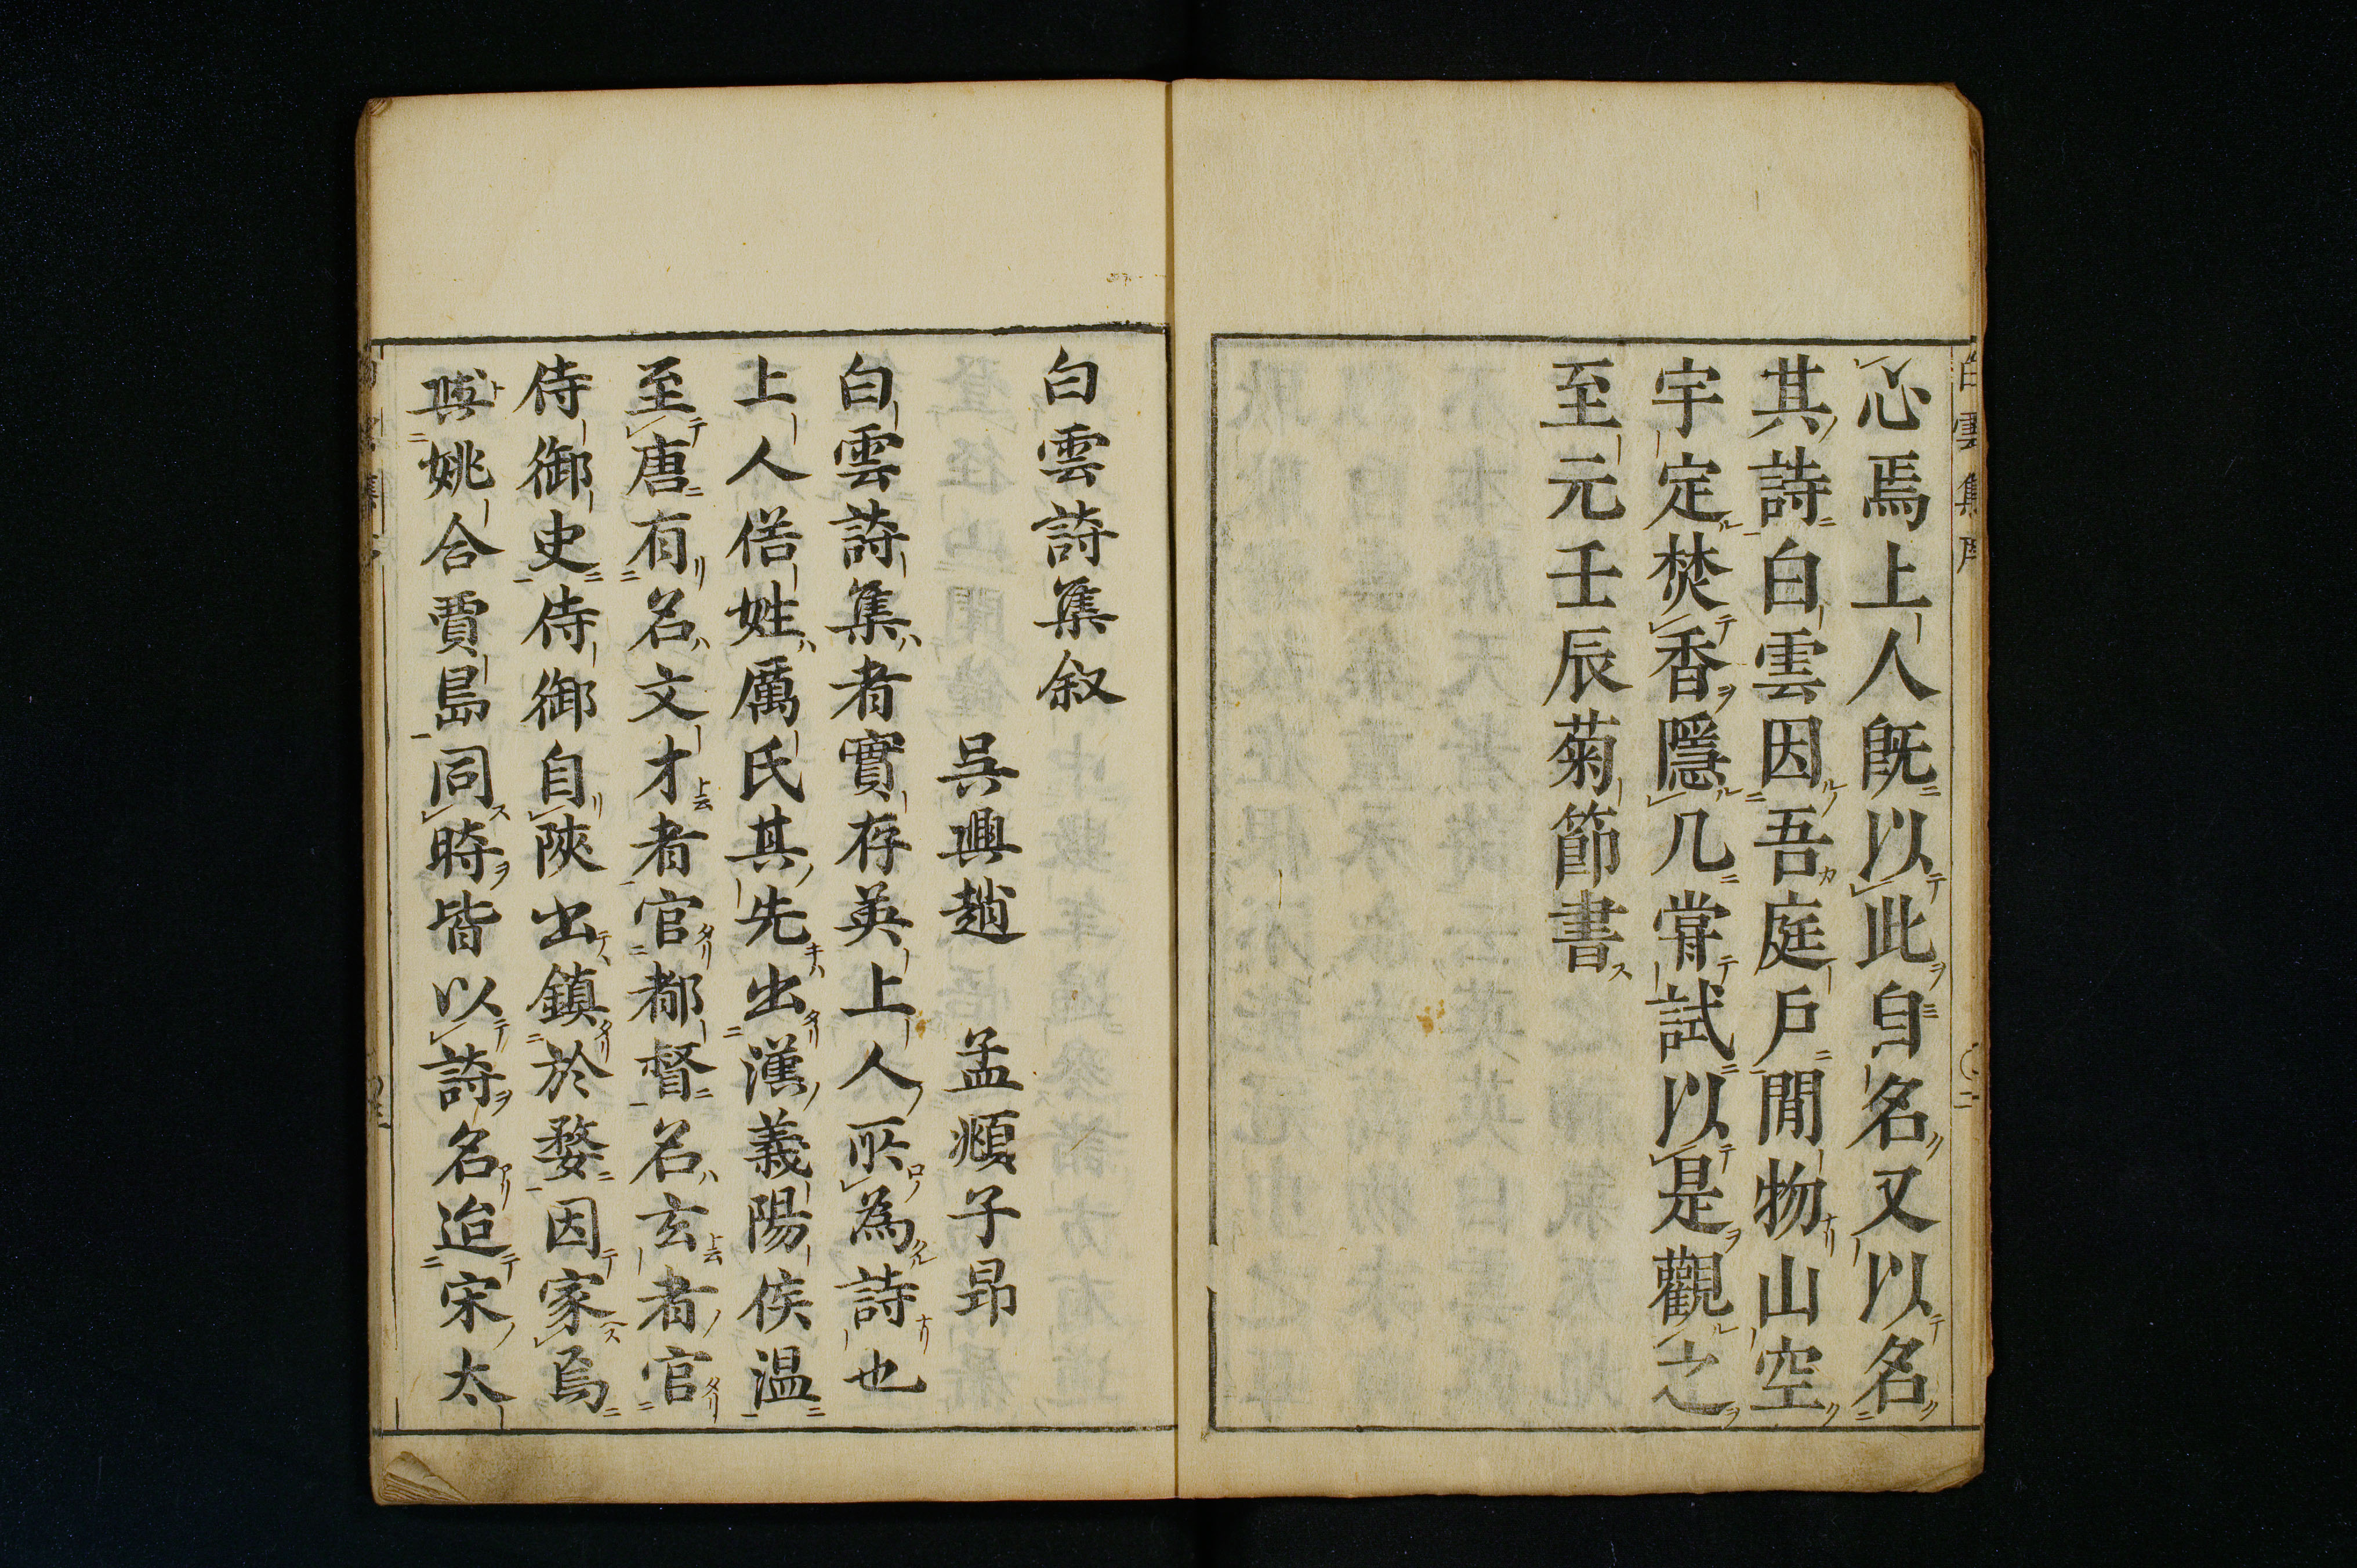 心焉上人既以此自名又以名
其詩白雲因吾庭戶閒物山空
宇定焚香隱几甞試以是觀之
至元壬辰菊節書
白雲詩集叙
吳興趙 孟頫子昂
白雲詩集者實存英上人所為詩也
上人俗姓厲氏其先出漢義陽侯温
至唐有名文才者官都督名玄者官
侍御史侍御自陜出鎮於婺因家焉
與姚合賈島同時皆以詩名迨宋太